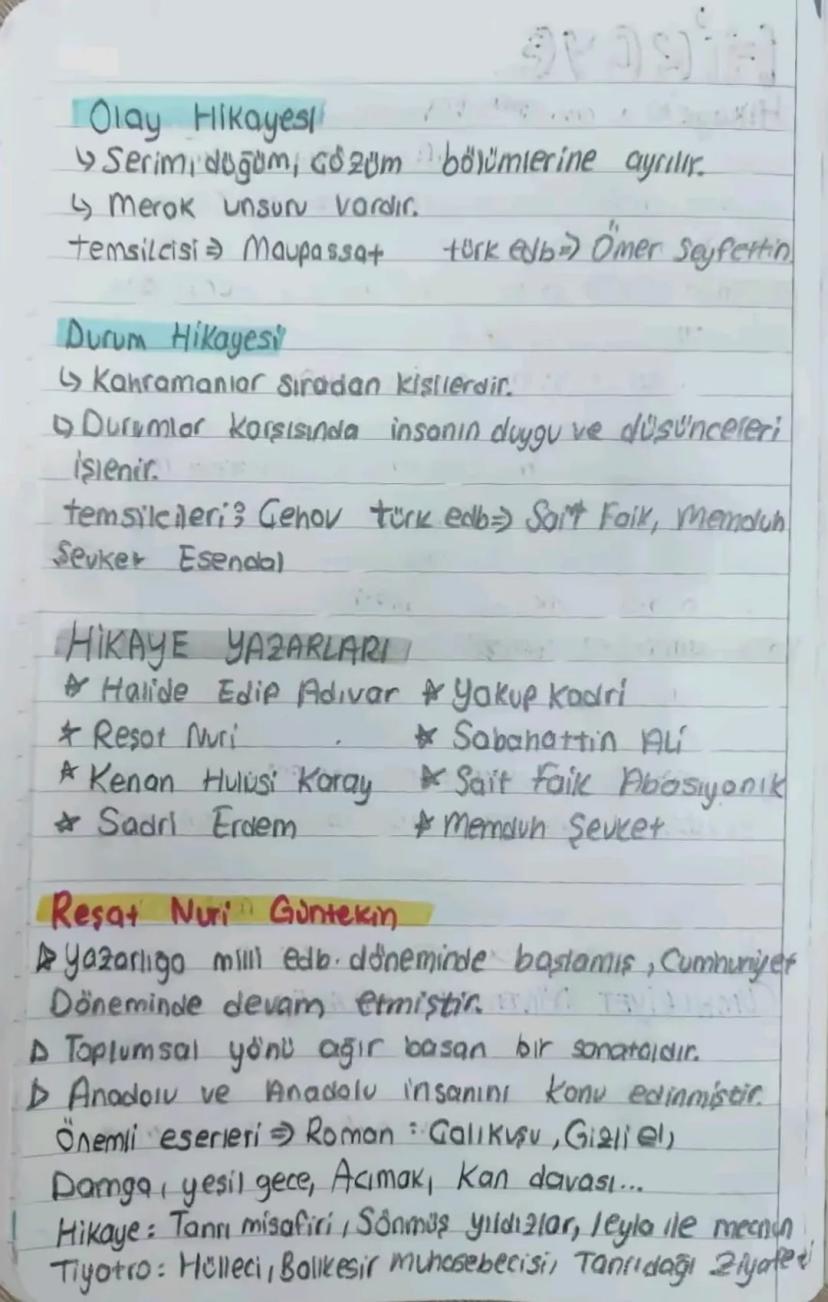 Olay Hikayesi
↳ Serim, düğüm, çözüm bölümlerine ayrılır.
↳ Merak unsuru vardır.
temsilcisi ⇒ Maupassat türk edb ⇒ Ömer Seyfettin
Durum Hikayesi
↳ Kahramanlar sıradan kişilerdir.
↳ Durumlar karşısında insanın duygu ve düşünceleri
işlenir.
temsilcileri: Çehov türk edb ⇒ Sait Faik, Memduh
Şevket Esendal
HİKAYE YAZARLARI
☆ Halide Edip Adıvar ☆ Yakup Kadri
☆ Reşat Nuri ☆ Sabahattin Ali
☆ Kenan Hulusi Koray ☆ Sait Faik Abasıyanık
☆ Sadri Erdem ☆ Memduh Şevket
Reşat Nuri Güntekin
▷ Yazarlığa milli edb. döneminde başlamış, Cumhuriyet
Döneminde devam etmiştir.
▷ Toplumsal yönü ağır basan bir sanatçıdır.
▷ Anadolu ve Anadolu insanını konu edinmiştir.
Önemli eserleri ⇒ Roman : Çalıkuşu, Gizli el,
Damga, yeşil gece, Acımak, Kan davası...
Hikaye: Tanrı misafiri, Sönmüş yıldızlar, leyla ile mecnun
Tiyatro: Hülleci, Balıkesir muhasebecisi, Tanrıdağı Ziyafeti